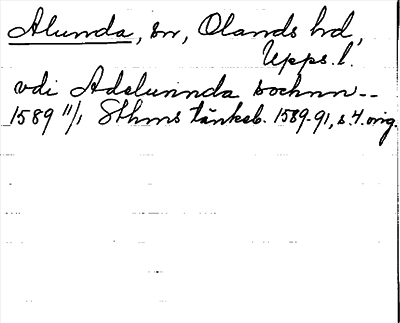 Alunda, sn, Olands hd,
Upps. l.
vdi Adelunnda sochnn--
1589 11/1 Sthms tänkeb. 1589-91, s. 4. orig.